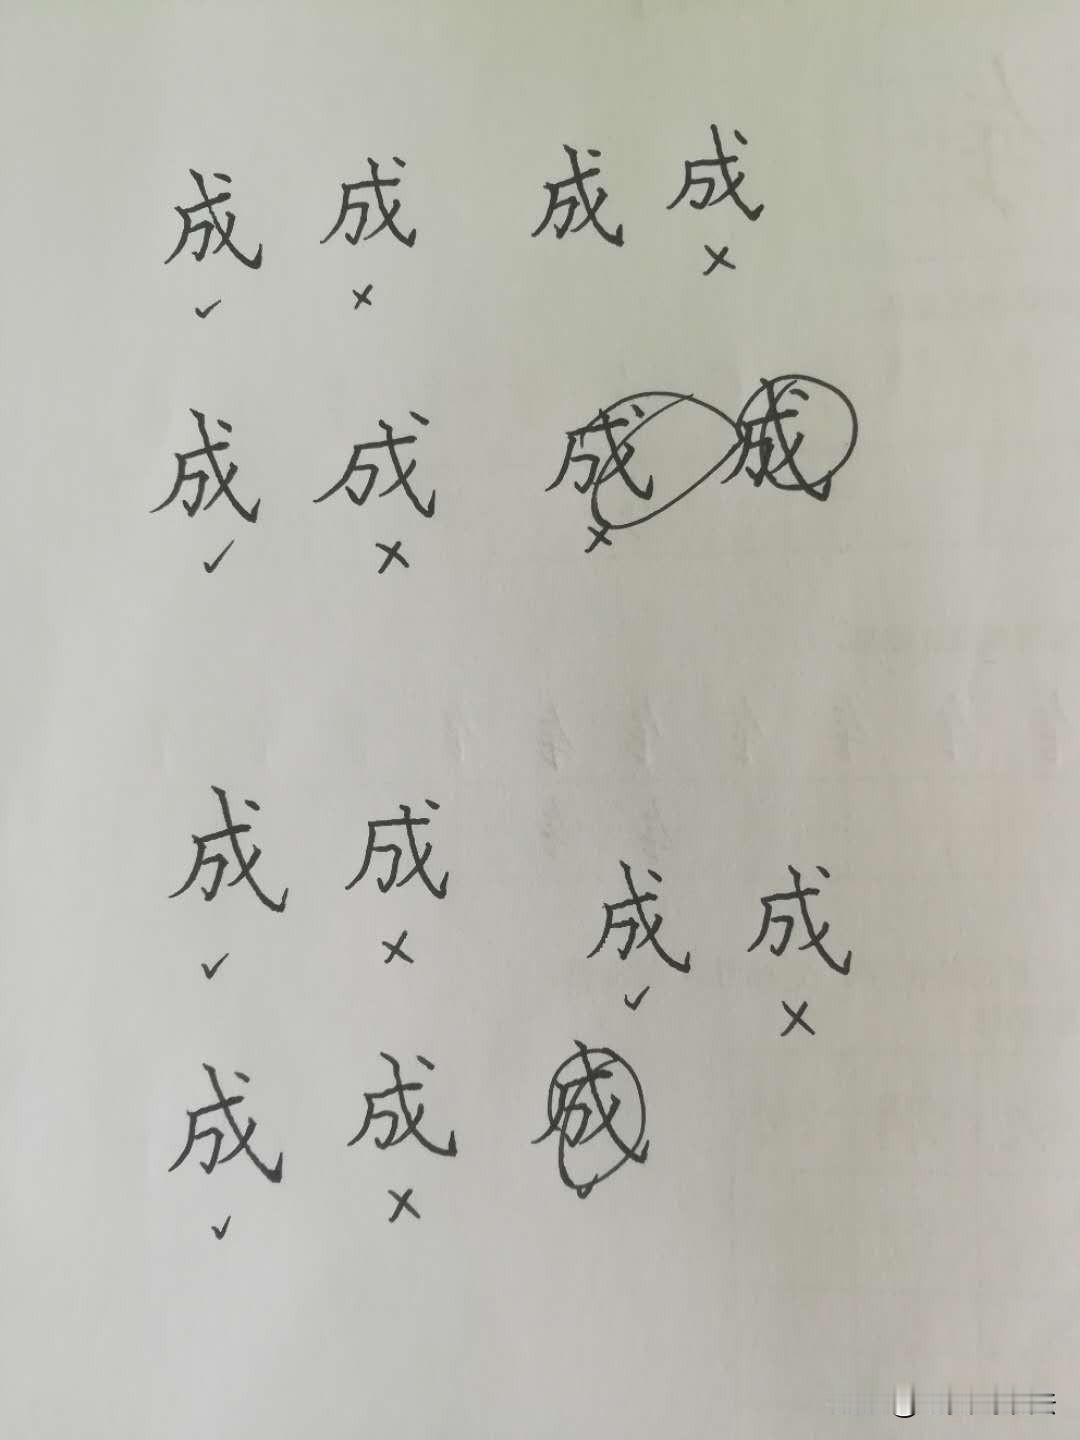 成 成 成 成
✓ × ×
成 成 成 成
✓ × ×
成 成
✓ ×
成 成
✓ ×
成 成 成
✓ ×